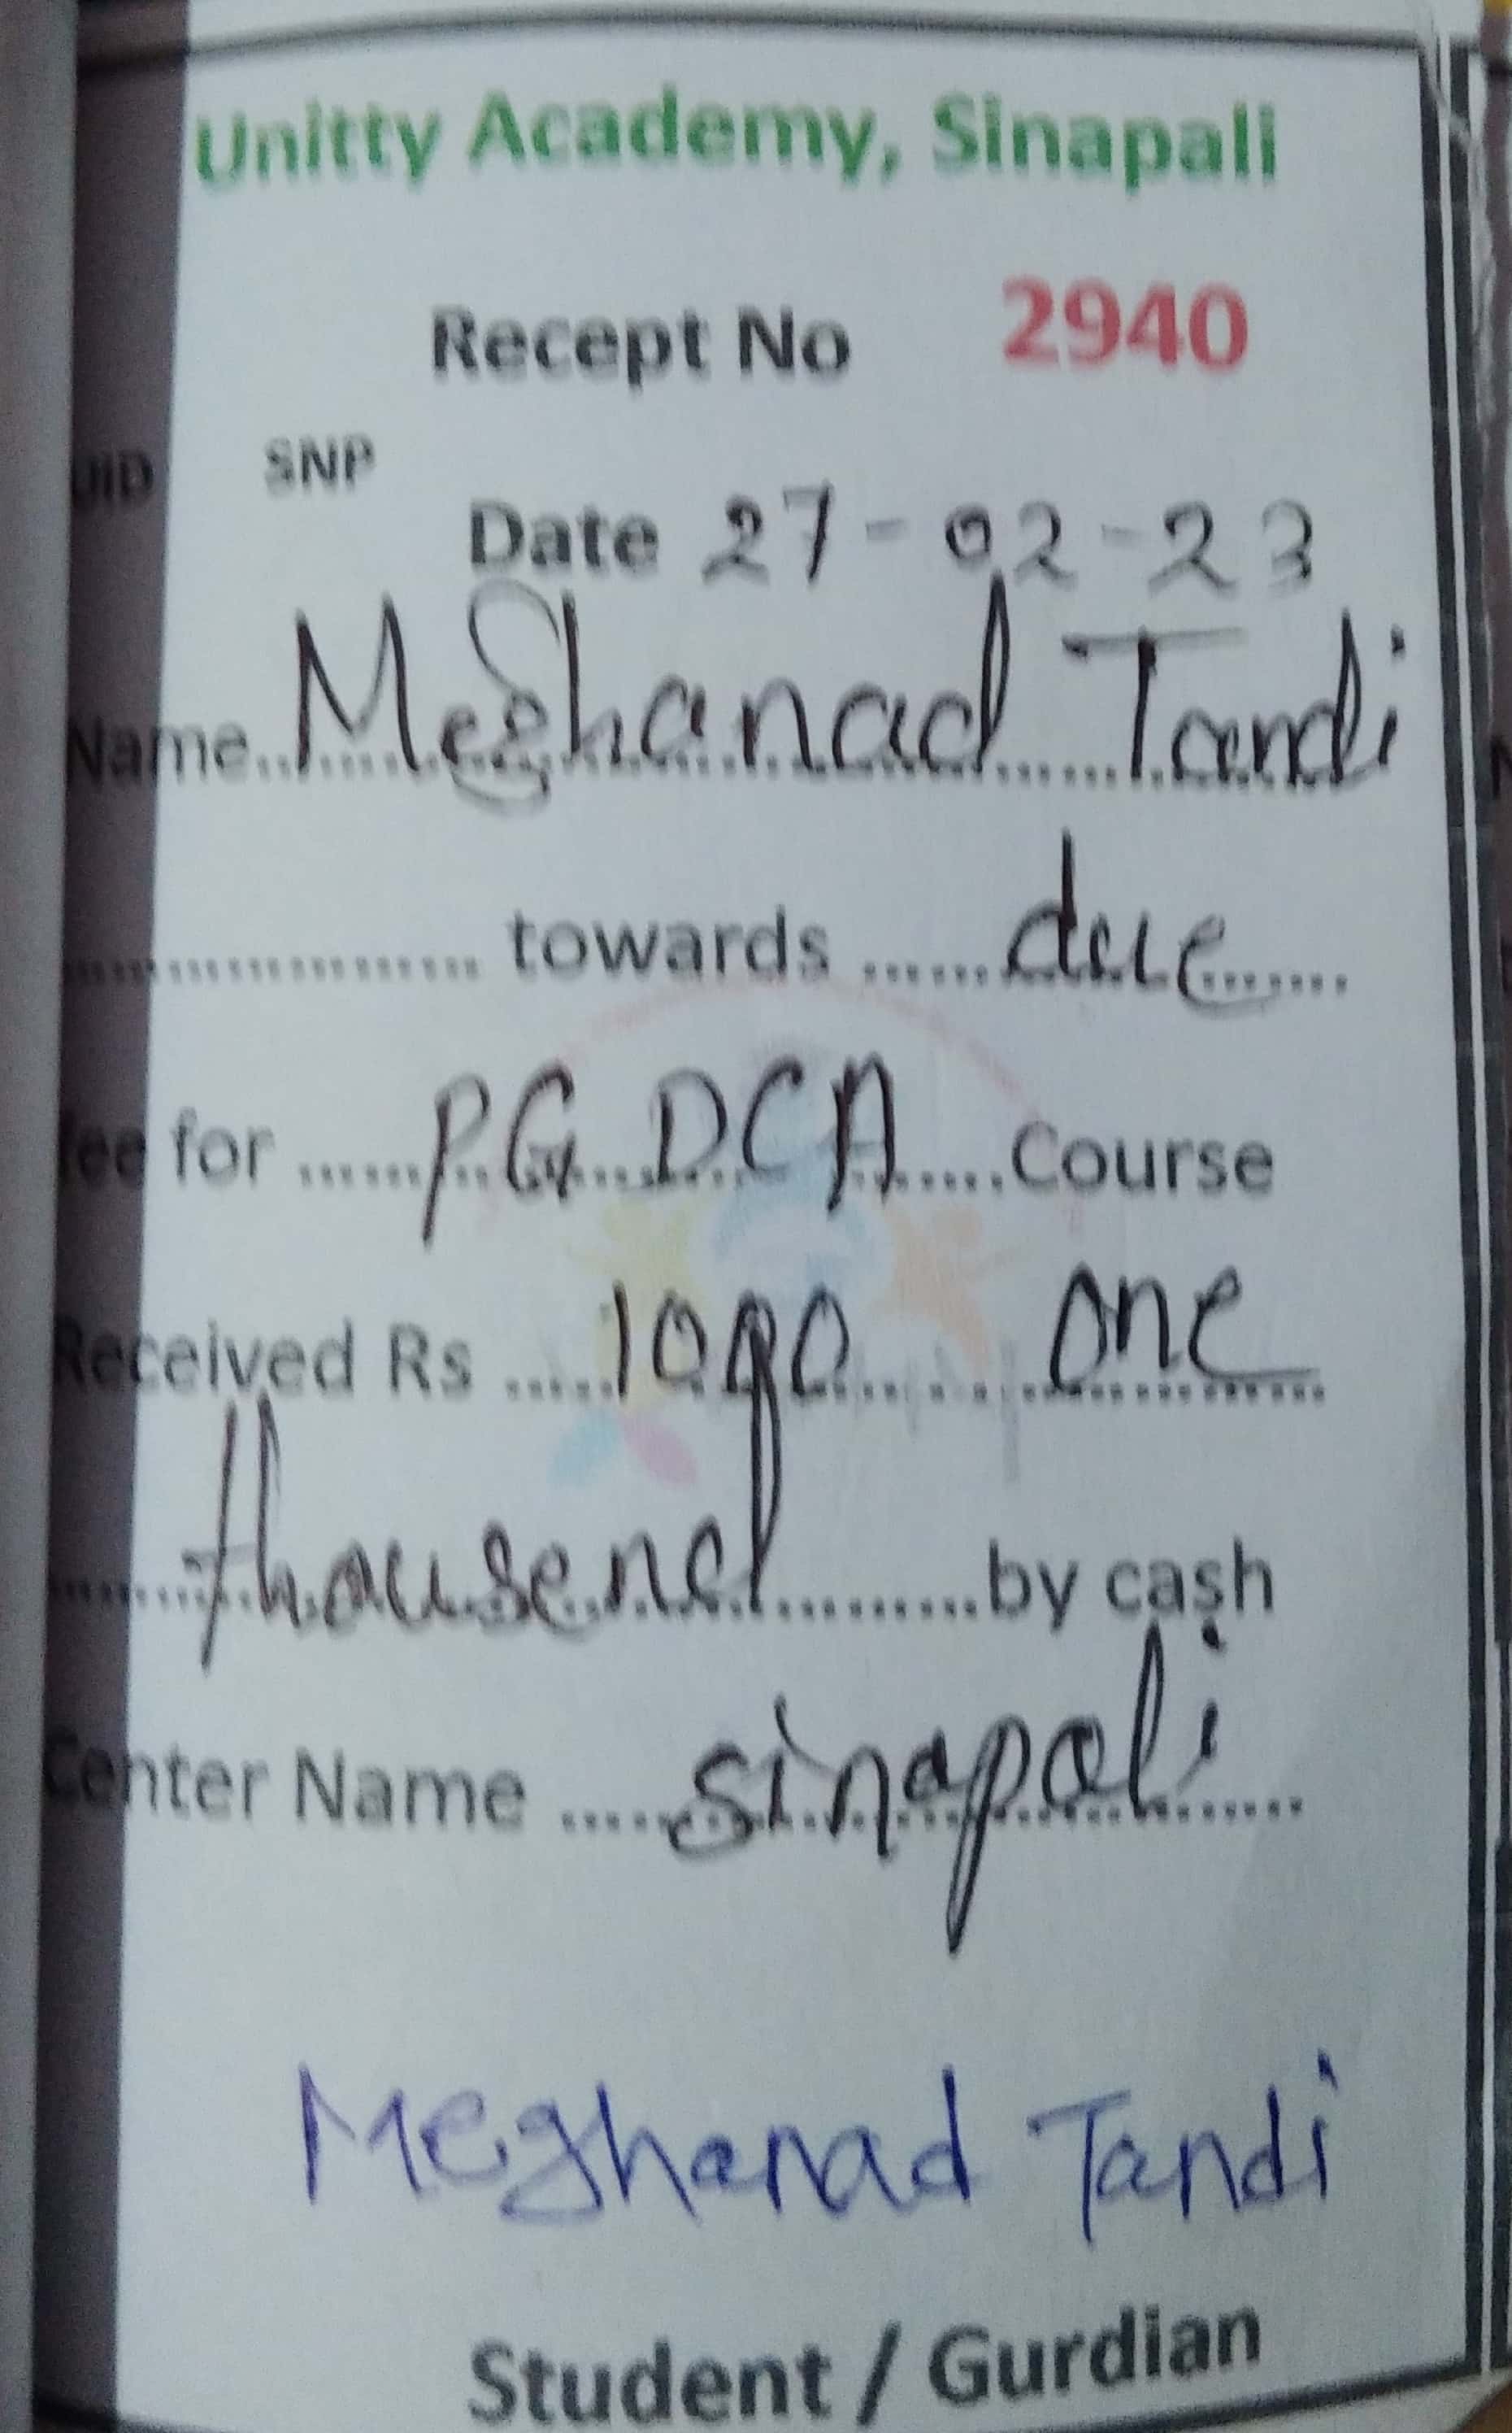 Unitty Academy, Sinapali
Recept No 2940
UID SNP
Date 27-02-23
Name...Meghanad Tandi
.................... towards ......due......
fee for ......PGDCA.....Course
Received Rs .....1000..... one
thousend..........by cash
Center Name .....Sinapali.....
Meghanad Tandi
Student / Gurdian